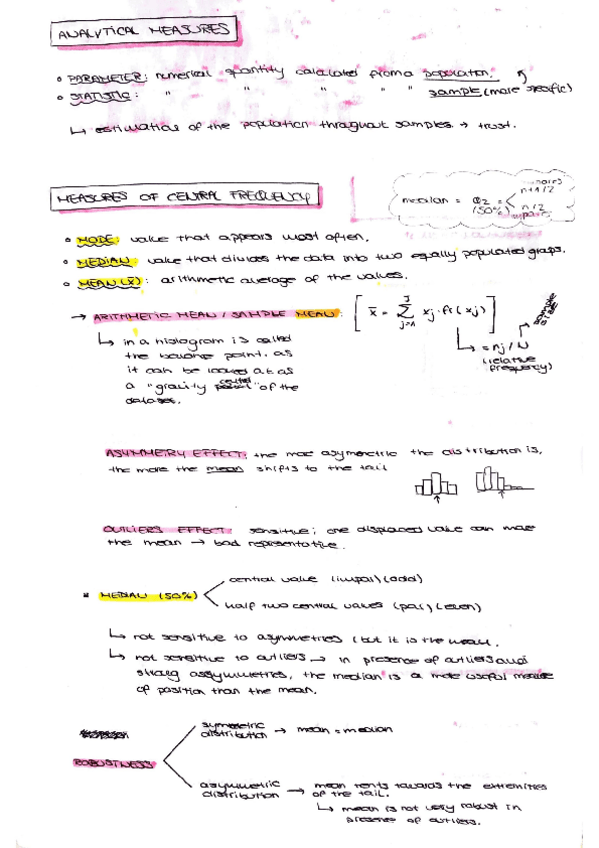 ANALYTICAL MEASURES
• PARAMETER: numerical quantity calculated from a population.
• STATISTIC: " " " " " sample (more specific)
↳ estimation of the population throughout samples → trust.
MEASURES OF CENTRAL FREQUENCY
median = Q2 = (50%) < n+1/2
n/2
• MODE: value that appears most often.
• MEDIAN: value that divides the data into two equally populated groups.
• MEAN (x̄): arithmetic average of the values.
→ ARITHMETIC MEAN / SAMPLE MEAN: [ x̄ = Σ xj · fr(xj) ]
sample size
↳ = nj / N
(relative frequency)
↳ in a histogram is called
the balance point, as
it can be looked at as
a "gravity center" of the
dataset.
ASYMMETRY EFFECT: the more asymmetric the distribution is,
the more the mean shifts to the tail
OUTLIERS EFFECT: sensitive; one displaced value can make
the mean → bad representative.
• MEDIAN (50%)
central value (impar) (odd)
half two central values (par) (even)
↳ not sensitive to asymmetries (but it is the mean.
↳ not sensitive to outliers → in presence of outliers and
strong assymmetries, the median is a more useful measure
of position than the mean.
ROBUSTNESS
symmetric
distribution → mean = median
asymmetric
distribution → mean tents towards the extremities
of the tail.
↳ mean is not very robust in
presence of outliers.